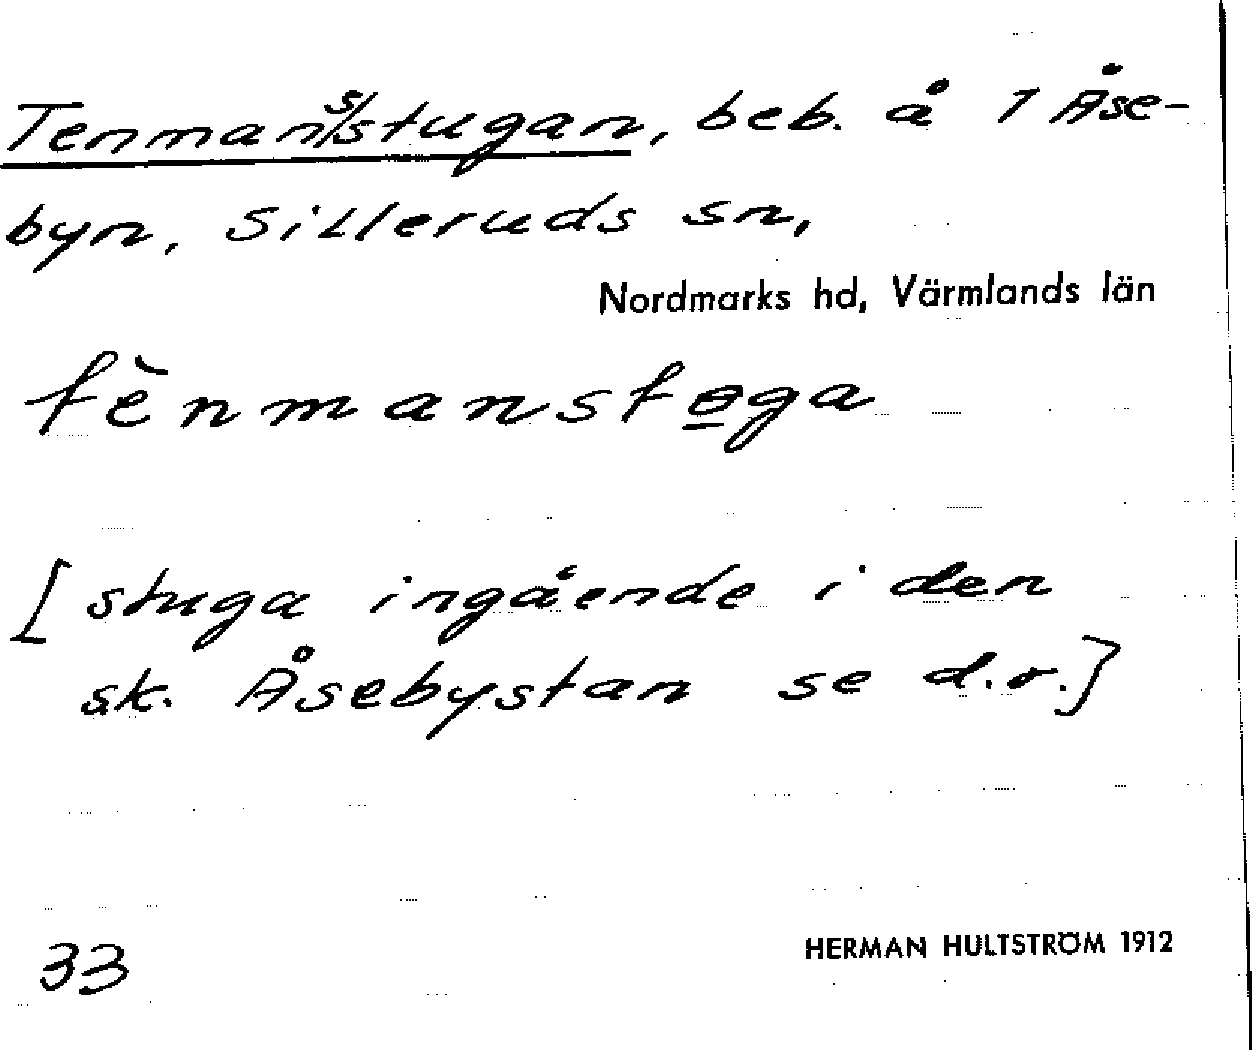 Tenmans/stugan, beb. å 1 Åse-
byn, Silleruds sn,
Nordmarks hd, Värmlands län
tènmanstoga
[stuga ingående i den
sk. Åsebystan se d.o.]
33
HERMAN HULTSTRÖM 1912